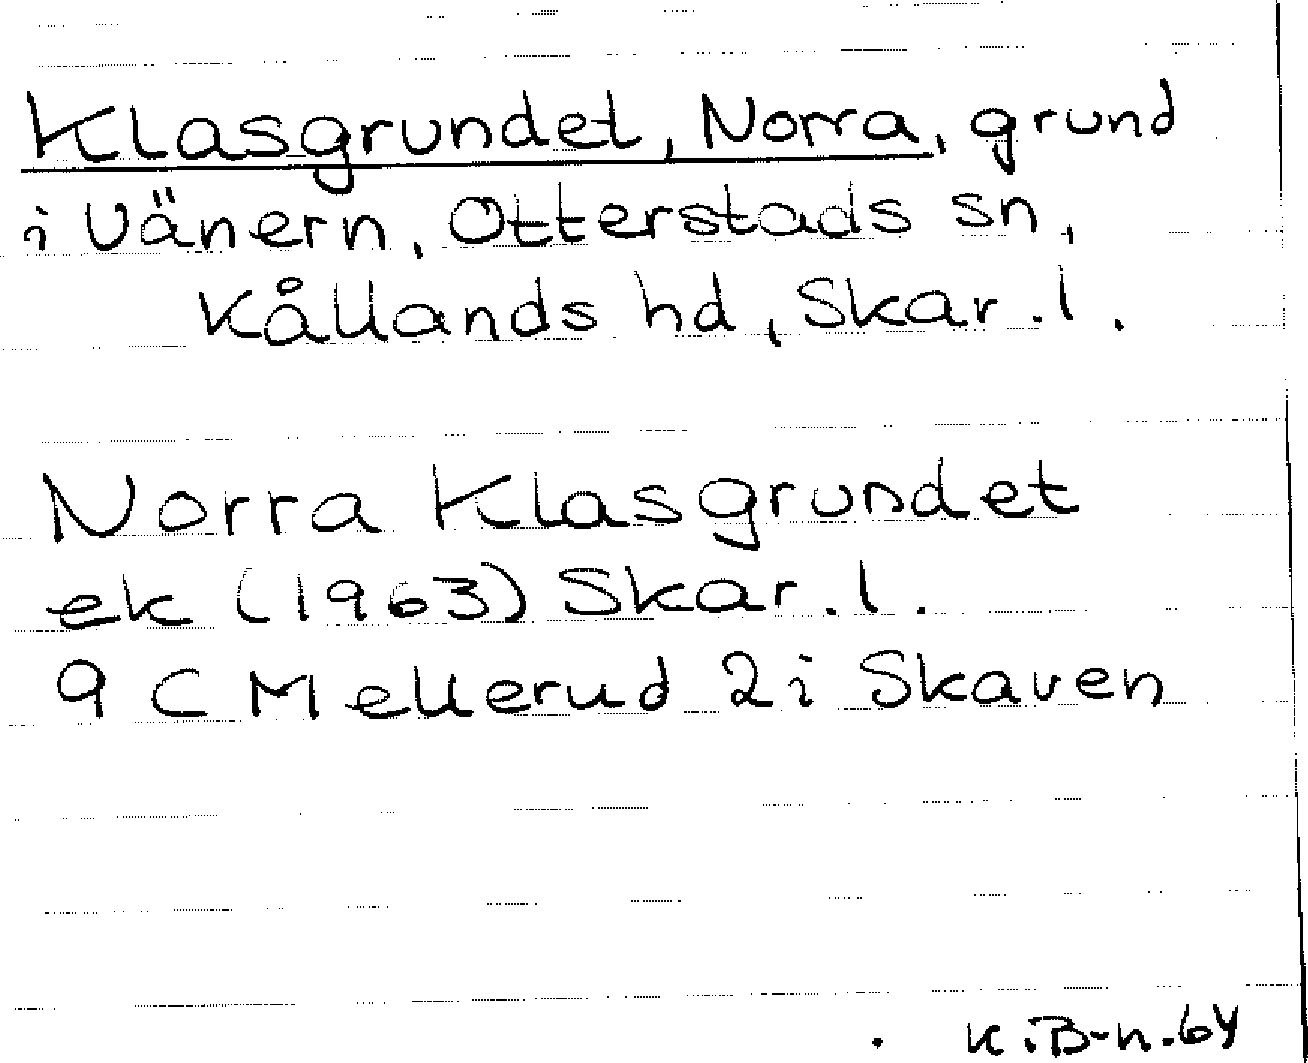 Klasgrundet, Norra, grund
i Vänern, Otterstads sn,
Kållands hd, Skar.l.
Norra Klasgrundet
ek (1963) Skar.l.
9 C Mellerud 2i Skaven
K.B-n.64